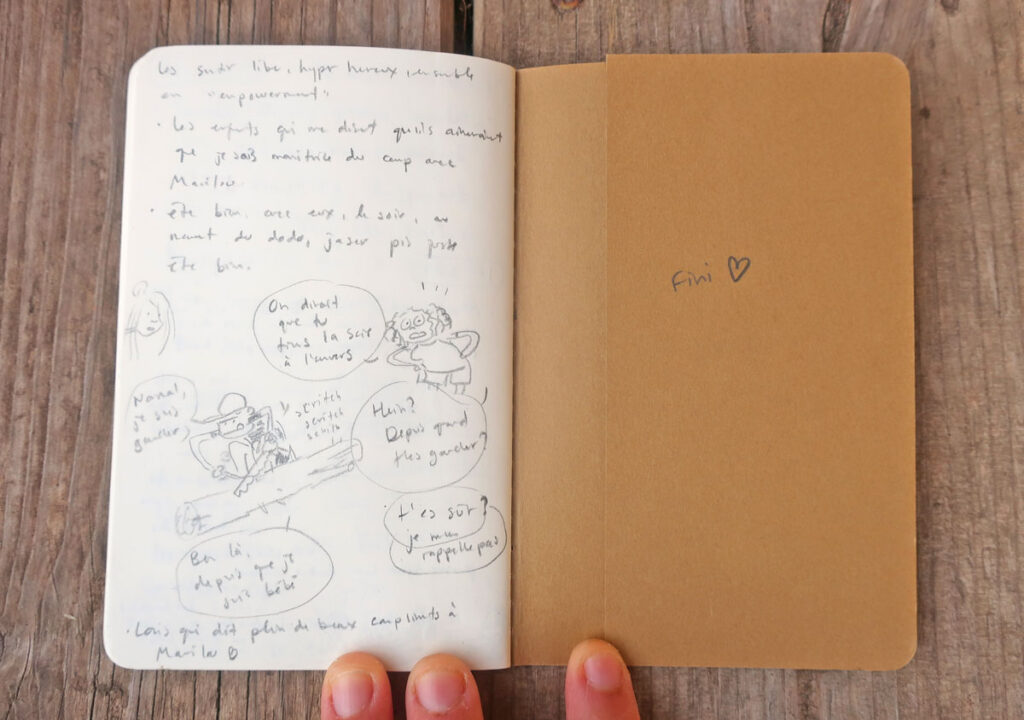 les sentir libre, hyper heureux, ensemble
en "empowerment"
· Les enfants qui me disent qu'ils aimeraient
que je sois monitrice du camp avec
Marilou.
· Être bien avec eux, le soir, au
moment du dodo, jaser pis juste
être bien.
On dirait
que tu
tiens la scie
à l'envers
Nonal,
je suis
gaucher
scritch
scritch
scritch
Hein?
Depuis quand
t'es gaucher?
t'es sûr?
je m'en
rappelle pas
Ben là,
depuis que je
suis bébé
· Loïs qui dit plein de beaux compliments à
Marilou ♡
Fini ♡